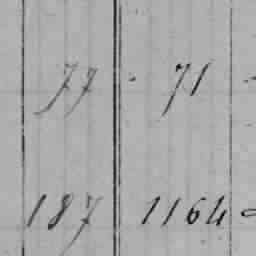 77 · 71 -
187 1164 =